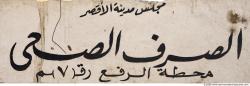 مجلس مدينة الأقصر
الصرف الصحى
محطة الرفع رقم (٧) م